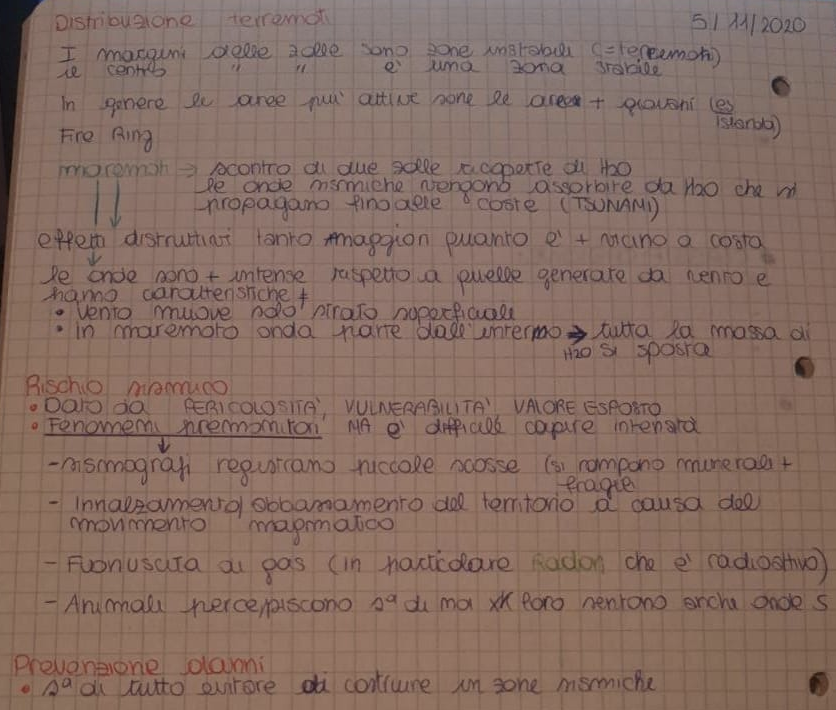 Distribuzione terremoti 5/11/2020
I margini delle zolle sono zone instabili (=terremoti)
il centro " " è una zona stabile
In genere le aree più attive sono le aree + giovani (es Islanda)
Fire Ring
maremoti → scontro di due zolle ricoperte di H2O
le onde sismiche vengono assorbite da H2O che si
propagano fino alle coste (TSUNAMI)
effetti distruttivi tanto maggiori quanto è + vicino a costa
le onde sono + intense rispetto a quelle generate da vento e
hanno caratteristiche ≠
• Vento muove solo strato superficiale
• In maremoto onda parte dall'interno → tutta la massa di
H2O si sposta
Rischio sismico
• Dato da PERICOLOSITÀ, VULNERABILITÀ, VALORE ESPOSTO
• Fenomeni premonitori MA è difficile capire intensità
- sismografi registrano piccole scosse (si rompono minerali +
fragili
- Innalzamento/abbassamento del territorio a causa del
movimento magmatico
- Fuoriuscita di gas (in particolare Radon che è radioattivo)
- Animali percepiscono 1ª di noi xK loro sentono anche onde S
Prevenzione danni
• 1ª di tutto evitare di costruire in zone sismiche